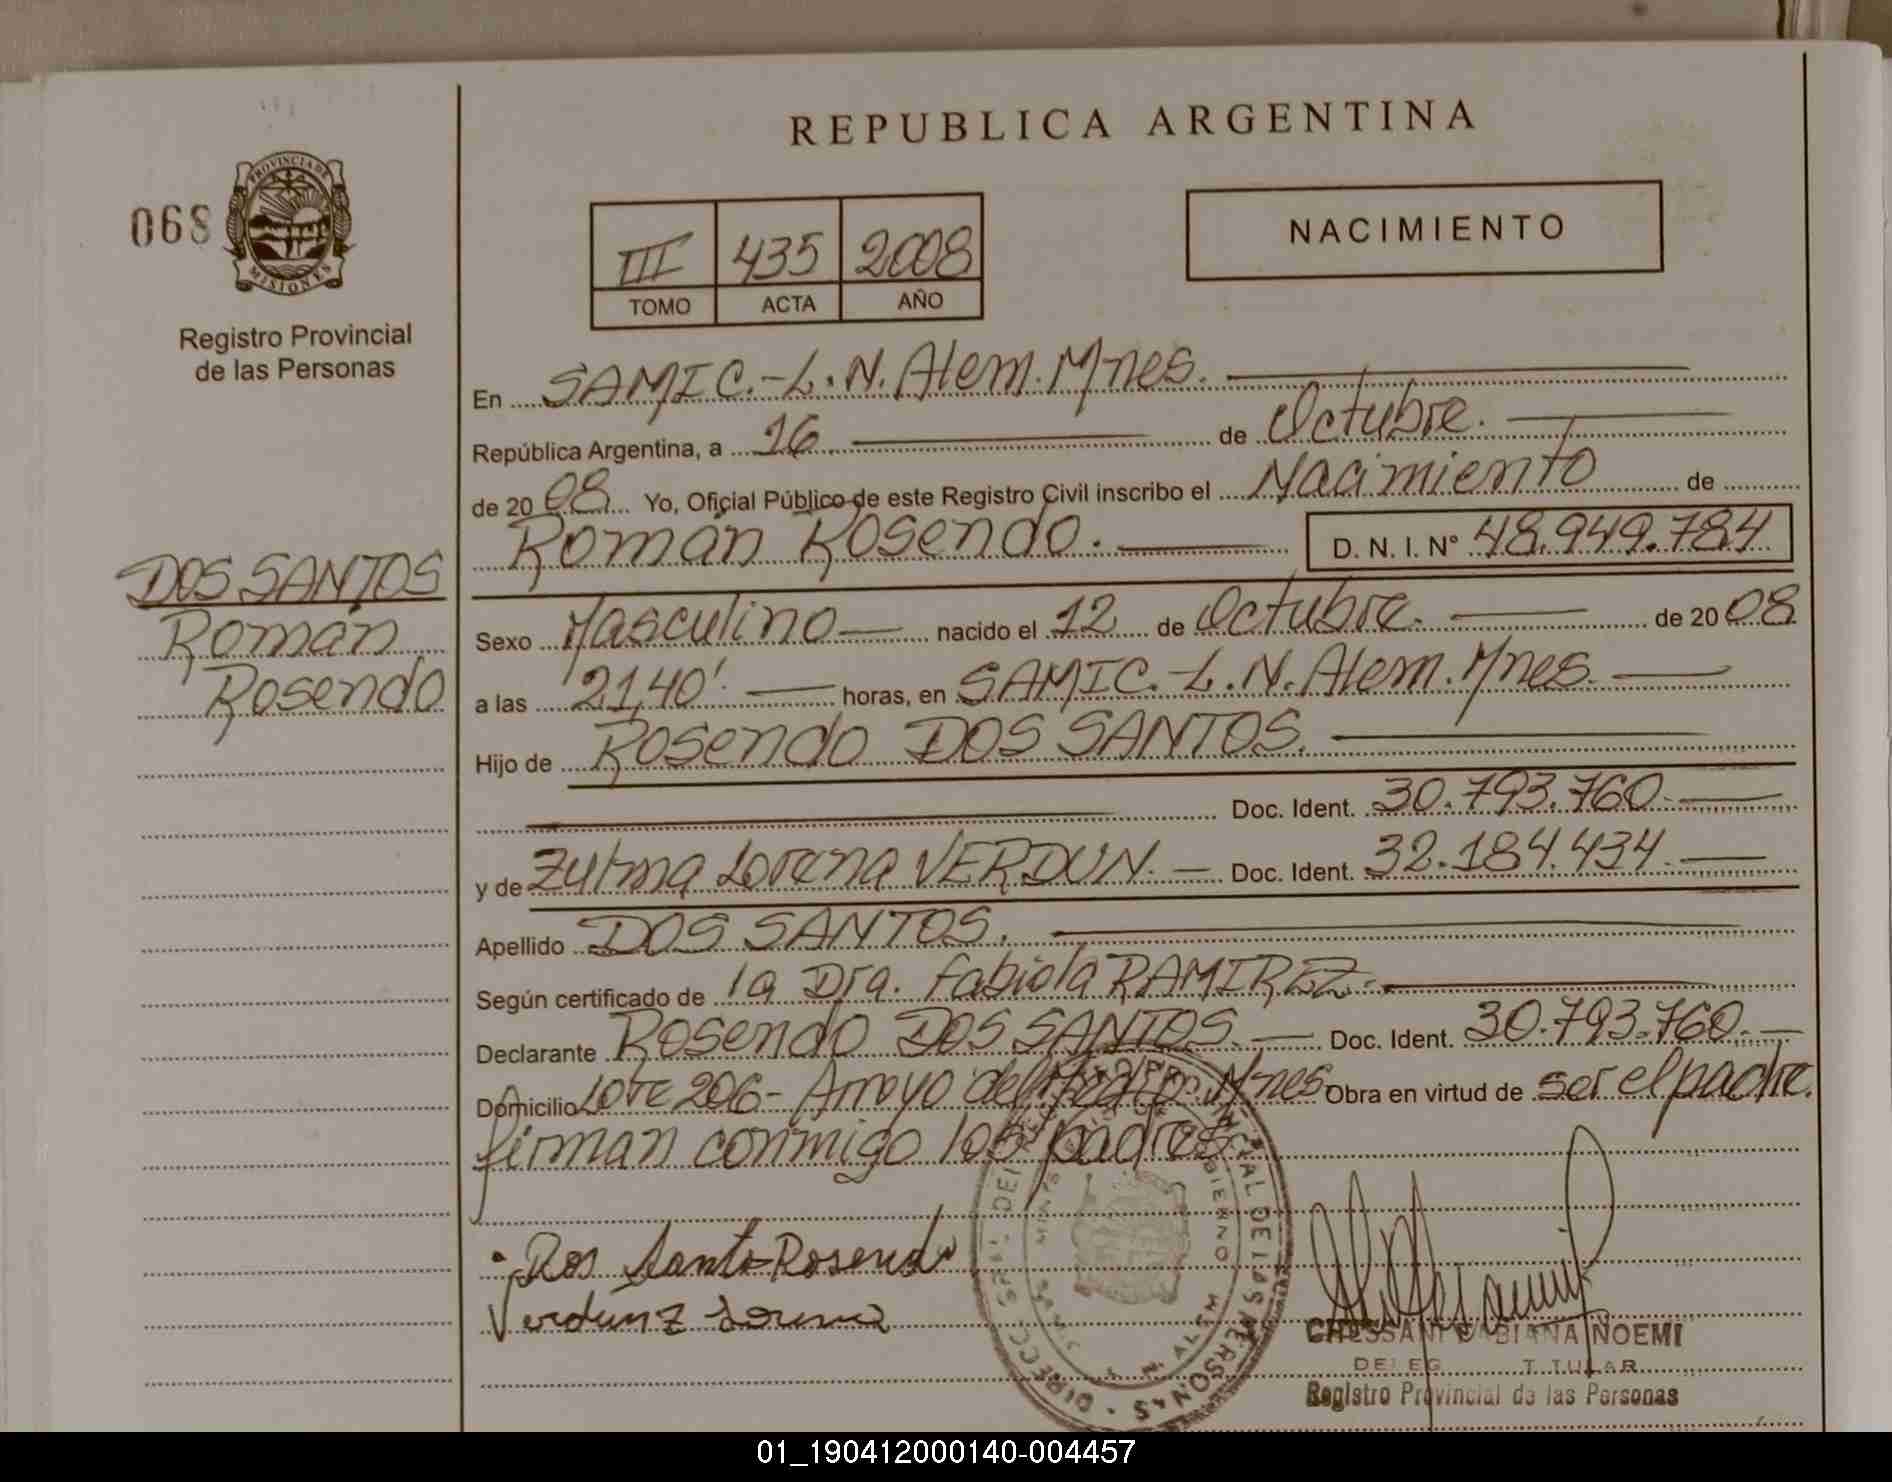 REPUBLICA ARGENTINA
068
PROVINCIA DE
MISIONES
Registro Provincial
de las Personas
III 435 2008
TOMO ACTA AÑO
NACIMIENTO
En SAMIC.-L.N.Alem.Mnes.
República Argentina, a 16 de Octubre.
de 20 08 Yo, Oficial Público de este Registro Civil inscribo el Nacimiento de
Román Rosendo. D. N. I. N° 48.949.784
DOS SANTOS
Román
Rosendo
Sexo Masculino nacido el 12 de Octubre. de 20 08
a las 21,40'. horas, en SAMIC.-L.N.Alem.Mnes.
Hijo de Rosendo DOS SANTOS.
Doc. Ident. 30.793.760.
y de Zulma Lorena VERDUN. Doc. Ident. 32.184.434.
Apellido DOS SANTOS.
Según certificado de la Dra. Fabiola RAMIREZ.
Declarante Rosendo DOS SANTOS. Doc. Ident. 30.793.760.
Domicilio Lote 206- Arroyo del Medio. Mnes Obra en virtud de ser el padre.
firman conmigo los padres.
Dos Santo Rosendo
Verdun Z Lorena
CHESSANI FABIANA NOEMI
DELEG. TITULAR
Registro Provincial de las Personas
01_190412000140-004457